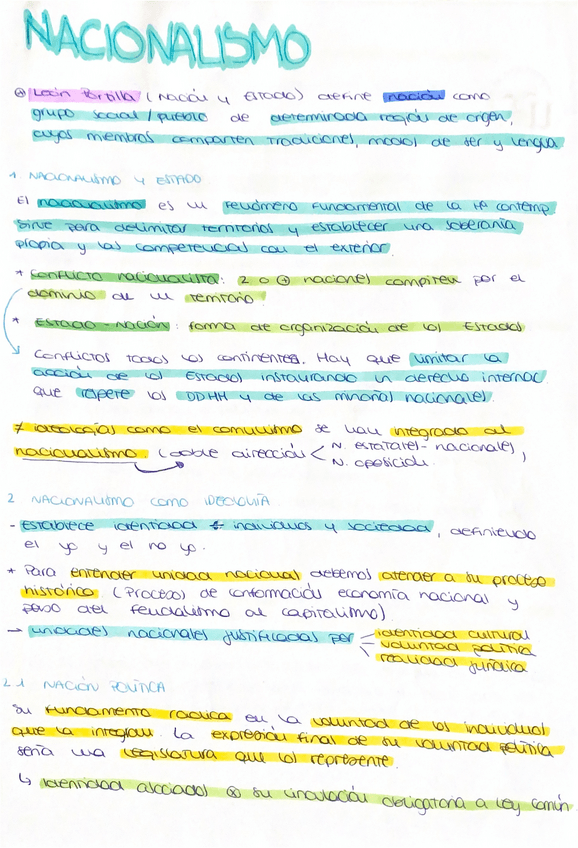 NACIONALISMO
León Portilla (Nación y Estado) define nación como
grupo social / pueblo de determinada región de origen,
cuyos miembros comparten tradiciones, modos de ser y lengua
1 NACIONALISMO Y ESTADO
El nacionalismo es un fenómeno fundamental de la Hª contemp.
Sirve para delimitar territorios y establecer una soberanía
propia y las competencias con el exterior.
* Conflicto nacionalista: 2 o ⊕ naciones compiten por el
dominio de un territorio.
* ESTADO-NACIÓN: forma de organización de los Estados
Conflictos todos los continentes. Hay que limitar la
acción de los Estados instaurando un derecho internac.
que respete los DDHH y de las minorías nacionales.
≠ ideologías como el comunismo se han integrado al
nacionalismo. (doble dirección < N. estatales-nacionales,
N. oposición.
2 NACIONALISMO COMO IDEOLOGÍA.
- Establece identidad individuos y sociedad, definiendo
el yo y el no yo.
* Para entender unidad nacional debemos atender a su proceso
histórico. (Proceso de conformación economía nacional y
paso del feudalismo al capitalismo).
→ unidades nacionales justificadas por identidad cultural
voluntad política
realidad jurídica
2.1 NACIÓN POLÍTICA
Su fundamento radica en la voluntad de los individuos
que la integran. La expresión final de su voluntad política
sería una legislatura que los represente.
↳ Identidad asociados su vinculación obligatoria a ley común.